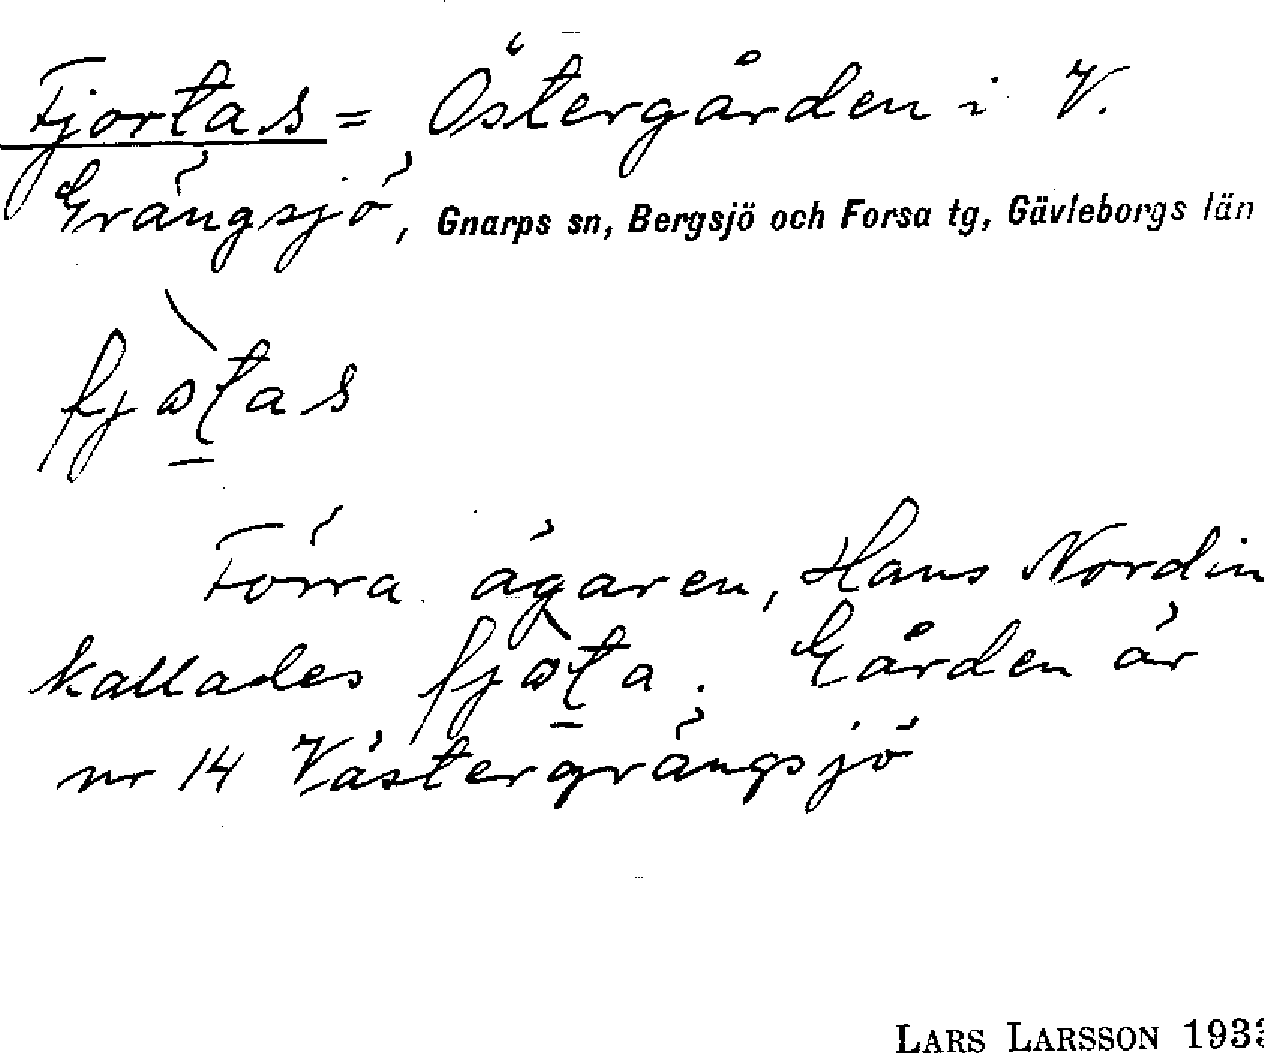 Fjortas = Östergården i V.
Grängsjö, Gnarps sn, Bergsjö och Forsa tg, Gävleborgs län
fjòtas
Förra ägaren, Hans Nordin
kallades fjòta. Gården är
nr 14 Västergrängsjö
LARS LARSSON 1933